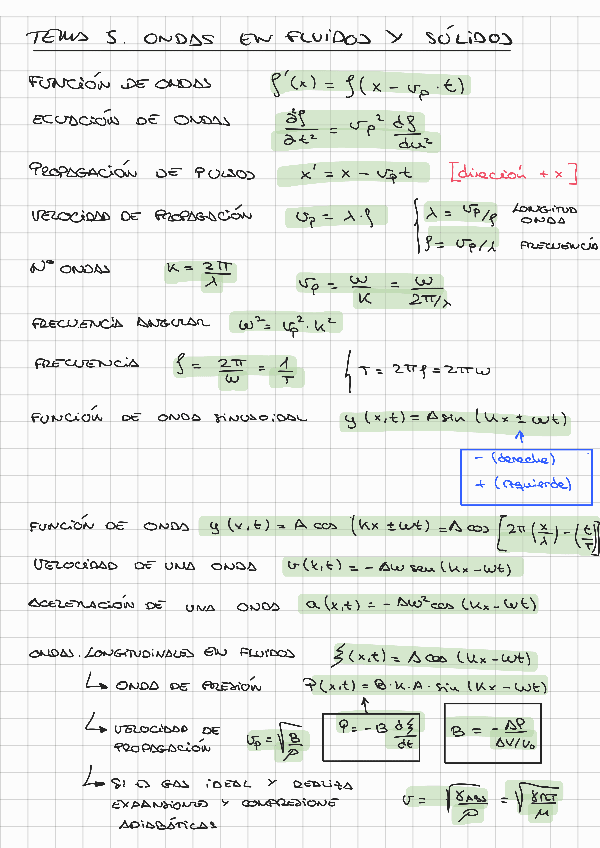 TEMA 5. ONDAS EN FLUIDOS Y SÓLIDOS
FUNCIÓN DE ONDAS f'(x) = f(x - vp · t)
ECUACIÓN DE ONDAS ∂²f/∂t² = vp² df/du²
PROPAGACIÓN DE PULSOS x' = x - vp t [dirección + x]
VELOCIDAD DE PROPAGACIÓN vp = λ · f { λ = vp/f LONGITUD ONDA
f = vp/λ FRECUENCIA
Nº ONDAS K = 2π/λ vp = ω/K = ω/2π/λ
FRECUENCIA ANGULAR ω² = vp² · K²
FRECUENCIA f = 2π/ω = 1/T { T = 2πf = 2πω
FUNCIÓN DE ONDA SINUSOIDAL y (x,t) = A sin (Kx ± ωt)
- (derecha)
+ (izquierda)
FUNCIÓN DE ONDA y (x,t) = A cos (Kx ± ωt) = A cos [2π (x/λ) - (t/T)]
VELOCIDAD DE UNA ONDA v(x,t) = - Aω sen (Kx - ωt)
ACELERACIÓN DE UNA ONDA a(x,t) = - Aω² cos (Kx - ωt)
ONDAS LONGITUDINALES EN FLUIDOS ξ(x,t) = A cos (Kx - ωt)
↳ ONDA DE PRESIÓN P(x,t) = B · K · A · sin (Kx - ωt)
↳ VELOCIDAD DE PROPAGACIÓN vp = √B/ρ P = - B dξ/dt B = - ΔP/ΔV/V₀
↳ SI ES GAS IDEAL Y REALIZA
EXPANSIONES Y COMPRESIONE
ADIABÁTICAS v = √γPABS/ρ = √γRT/μ